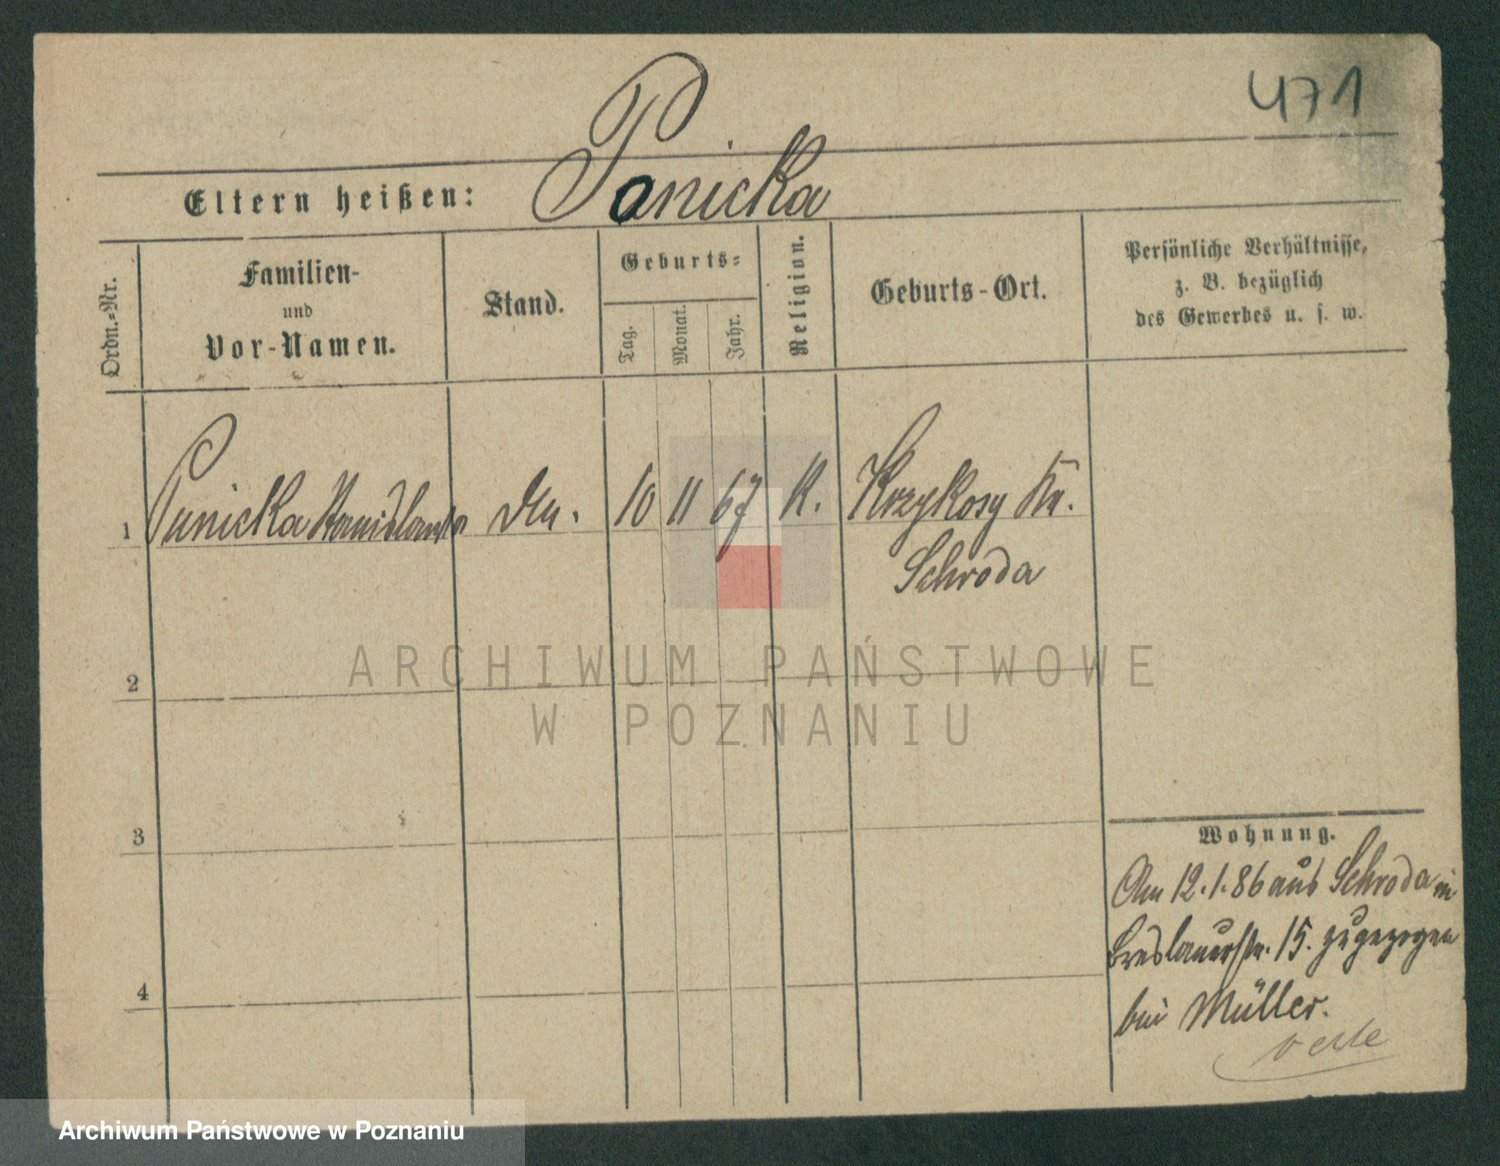 471
Eltern heißen: Panicka
Ordn.-Nr.
Familien-
und
Vor-Namen.
Stand.
Geburts-
Tag.
Monat.
Jahr.
Religion.
Geburts-Ort.
Persönliche Verhältnisse,
z. B. bezüglich
des Gewerbes u. s. w.
1 Panicka Stanislawa 10 11 67 K. Krzykosy Kr.
Schroda
2
3
4
Wohnung.
Am 12.1.86 aus Schroda in
Breslauerstr. 15. zugezogen
bei Müller.
ARCHIWUM PAŃSTWOWE
W POZNANIU
Archiwum Państwowe w Poznaniu